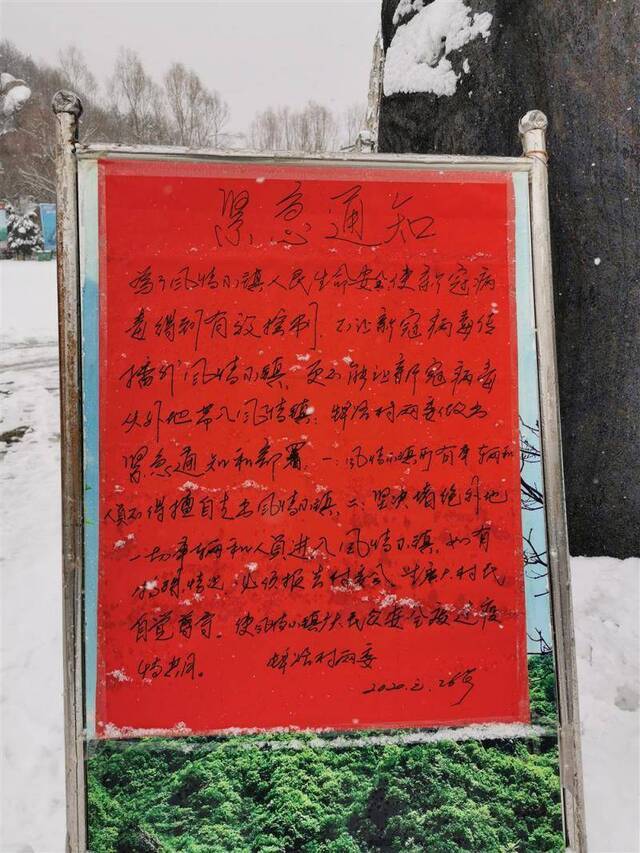 紧急通知
为了风情小镇人民生命安全使新冠病
毒得到有效控制，不让新冠病毒传
播到风情小镇，更不能让新冠病毒
从外地带入风情镇，村两委做出
紧急通知和部署，一：风情小镇所有车辆和
人员不得擅自走出风情小镇，二：坚决堵绝外地
一切车辆和人员进入风情小镇，如有
特殊情况，必须报告村委会，望广大村民
自觉尊守，使风情小镇广大民众安全度过疫
情
村两委
2020.2.26号